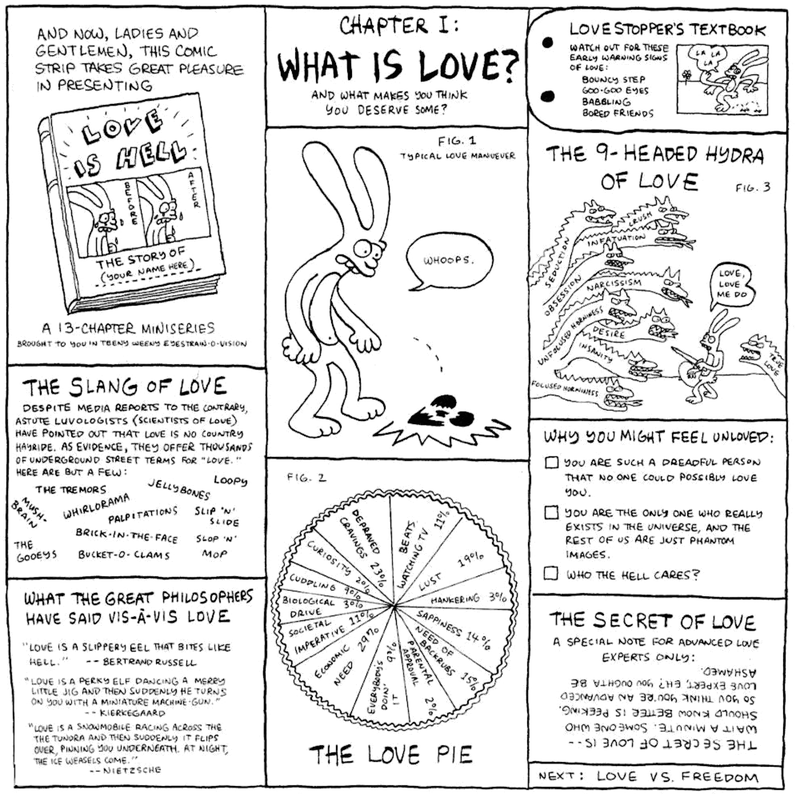 AND NOW, LADIES AND
GENTLEMEN, THIS COMIC
STRIP TAKES GREAT PLEASURE
IN PRESENTING
LOVE
IS HELL
BEFORE
AFTER
THE STORY OF
(YOUR NAME HERE)
A 13-CHAPTER MINISERIES
BROUGHT TO YOU IN TEENY WEENY EYESTRAIN-O-VISION
THE SLANG OF LOVE
DESPITE MEDIA REPORTS TO THE CONTRARY,
ASTUTE LUVOLOGISTS (SCIENTISTS OF LOVE)
HAVE POINTED OUT THAT LOVE IS NO COUNTRY
HAYRIDE. AS EVIDENCE, THEY OFFER THOUSANDS
OF UNDERGROUND STREET TERMS FOR "LOVE."
HERE ARE BUT A FEW:
THE TREMORS
JELLYBONES
LOOPY
MUSH-
BRAIN
WHIRLORAMA
PALPITATIONS
SLIP 'N'
SLIDE
THE
GOOEYS
BRICK-IN-THE-FACE
SLOP 'N'
MOP
BUCKET-O-CLAMS
WHAT THE GREAT PHILOSOPHERS
HAVE SAID VIS-À-VIS LOVE
"LOVE IS A SLIPPERY EEL THAT BITES LIKE
HELL." -- BERTRAND RUSSELL
"LOVE IS A PERKY ELF DANCING A MERRY
LITTLE JIG AND THEN SUDDENLY HE TURNS
ON YOU WITH A MINIATURE MACHINE-GUN."
-- KIERKEGAARD
"LOVE IS A SNOWMOBILE RACING ACROSS THE
THE TUNDRA AND THEN SUDDENLY IT FLIPS
OVER, PINNING YOU UNDERNEATH. AT NIGHT,
THE ICE WEASELS COME."
-- NIETZSCHE
CHAPTER I:
WHAT IS LOVE?
AND WHAT MAKES YOU THINK
YOU DESERVE SOME?
FIG. 1
TYPICAL LOVE MANUEVER
WHOOPS.
FIG. 2
BEATS
WATCHING TV 11%
LUST 19%
HANKERING 3%
SAPPINESS 14%
NEED OF
BACKRUBS 15%
PARENTAL
APPROVAL 2%
EVERYBODY'S
DOIN'
IT 9%
ECONOMIC
NEED 29%
SOCIETAL
IMPERATIVE 11%
BIOLOGICAL
DRIVE 3%
CUDDLING 9%
CURIOSITY 2%
DEPRAVED
CRAVINGS 23%
THE LOVE PIE
LOVE STOPPER'S TEXTBOOK
WATCH OUT FOR THESE
EARLY WARNING SIGNS
OF LOVE:
BOUNCY STEP
GOO-GOO EYES
BABBLING
BORED FRIENDS
LA LA
LA
THE 9-HEADED HYDRA
OF LOVE
FIG. 3
CRUSH
INFATUATION
SEDUCTION
OBSESSION
NARCISSISM
UNFOCUSED HORNINESS
DESIRE
INSANITY
FOCUSED HORNINESS
LOVE,
LOVE
ME DO
TRUE
LOVE
WHY YOU MIGHT FEEL UNLOVED:
YOU ARE SUCH A DREADFUL PERSON
THAT NO ONE COULD POSSIBLY LOVE
YOU.
YOU ARE THE ONLY ONE WHO REALLY
EXISTS IN THE UNIVERSE, AND THE
REST OF US ARE JUST PHANTOM
IMAGES.
WHO THE HELL CARES?
THE SECRET OF LOVE
A SPECIAL NOTE FOR ADVANCED LOVE
EXPERTS ONLY:
THE SECRET OF LOVE IS --
WAIT A MINUTE. SOMEONE WHO
SHOULD KNOW BETTER IS PEEKING.
SO YOU THINK YOU'RE AN ADVANCED
LOVE EXPERT, EH? YOU OUGHTA BE
ASHAMED.
NEXT: LOVE VS. FREEDOM